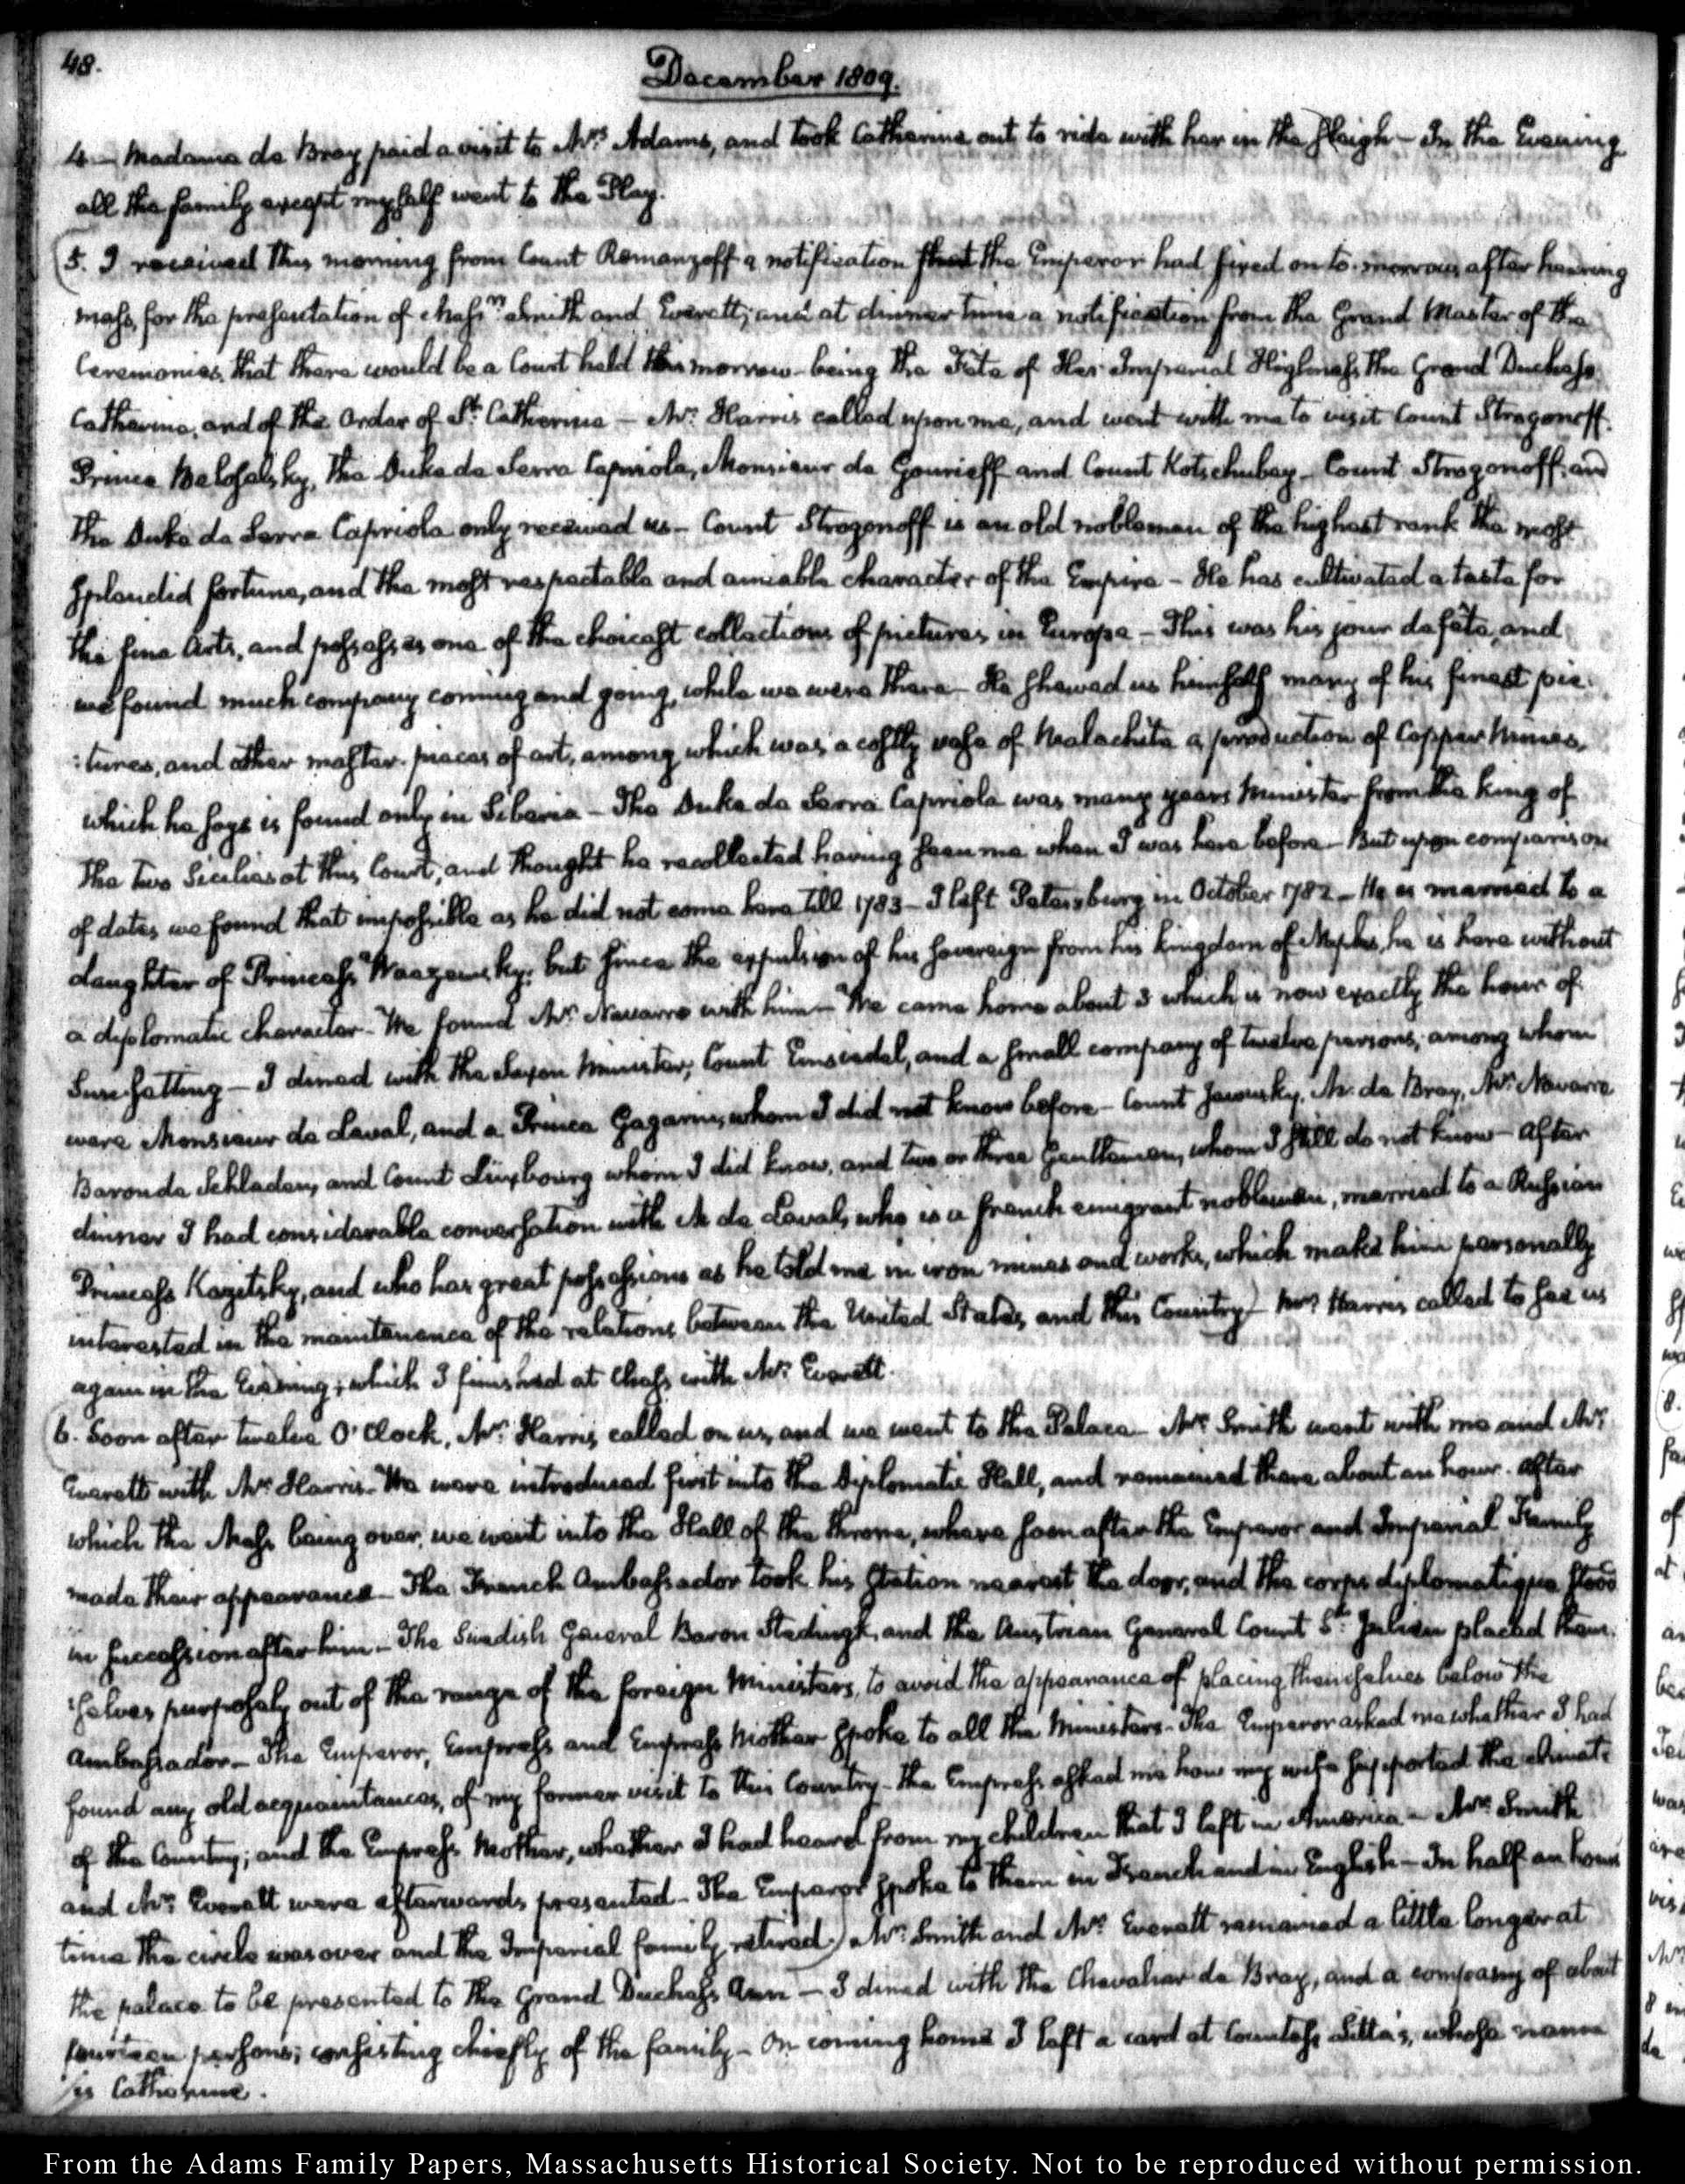 48.
December 1809.
4. Madame de Bray paid a visit to Mrs. Adams, and took Catherine out to ride with her in the Sleigh — In the Evening
all the family except myself went to the Play.
5. I received this morning from Count Romanzoff a notification that the Emperor had fixed on to-morrow after hearing
mass, for the presentation of Messrs. Smith and Everett; and at dinner time a notification from the Grand Master of the
Ceremonies, that there would be a Court held to morrow being the Fête of Her Imperial Highness the Grand Duchess
Catherine, and of the Order of St. Catherine — Mr. Harris called upon me, and went with me to visit Count Strogonoff.
Prince Beloselsky, the Duke de Serra Capriola, Monsieur de Gourieff and Count Kotschubey — Count Strogonoff and
the Duke de Serra Capriola only received us — Count Strogonoff is an old nobleman of the highest rank the most
splendid fortune, and the most respectable and amiable character of the Empire — He has cultivated a taste for
the fine Arts, and possesses one of the choicest collections of pictures in Europe — This was his jour de fête, and
we found much company coming and going, while we were there — He shewed us himself many of his finest pic-
:tures, and other master-pieces of art, among which was a costly vase of Malachite a production of Copper Mines,
which he says is found only in Siberia — The Duke de Serra Capriola was many years Minister from the King of
the two Sicilies at this Court, and thought he recollected having seen me when I was here before — But upon comparison
of dates we found that impossible as he did not come here till 1783 — I left Petersburg in October 1782 — He is married to a
daughter of Princess Waazemsky; but since the expulsion of his Sovereign from his kingdom of Naples, he is here without
a diplomatic character — We found Mr. Navarro with him — We came home about 3 which is now exactly the hour of
Sun-setting — I dined with the Saxon Minister, Count Einsiedel, and a small company of twelve persons, among whom
were Monsieur de Laval, and a Prince Gagarin, whom I did not know before — Count Jennsky, Mr. de Bray, Mr. Navarro
Baron de Schladen, and Count Luxbourg whom I did know, and two or three Gentlemen, whom I still do not know — After
dinner I had considerable conversation with M. de Laval, who is a french emigrant nobleman, married to a Russian
Princess Kozitsky, and who has great possessions as he told me in iron mines and works, which make him personally
interested in the maintenance of the relations between the United States, and this Country) Mr. Harris called to see us
again in the Evening; which I finished at Chess with Mr. Everett.
6. Soon after twelve O'Clock, Mr. Harris called on us, and we went to the Palace — Mr. Smith went with me and Mr.
Everett with Mr. Harris — We were introduced first into the Diplomatic Hall, and remained there about an hour. After
which the Mass being over, we went into the Hall of the throne, where soon after the Emperor and Imperial Family
made their appearance — The French Ambassador took his station nearest the door, and the corps diplomatique stood
in succession after him — The Swedish General Baron Stedingk, and the Austrian General Count St. Julien placed them-
:selves purposely out of the range of the foreign Ministers, to avoid the appearance of placing themselves below the
Ambassador — The Emperor, Empress and Empress Mother spoke to all the Ministers — The Emperor asked me whether I had
found any old acquaintances, of my former visit to this Country — The Empress asked me how my wife supported the climate
of the Country; and the Empress Mother, whether I had heard from my children that I left in America — Mr. Smith
and Mr. Everett were afterwards presented — The Emperor spoke to them in French and in English — In half an hour
time the circle was over and the Imperial family retired.) Mr. Smith and Mr. Everett remained a little longer at
the palace to be presented to the Grand Duchess Ann — I dined with the Chevalier de Bray, and a company of about
fourteen persons; consisting chiefly of the family — On coming home I left a card at Countess Litta's, whose name
is Catherine.
From the Adams Family Papers, Massachusetts Historical Society. Not to be reproduced without permission.